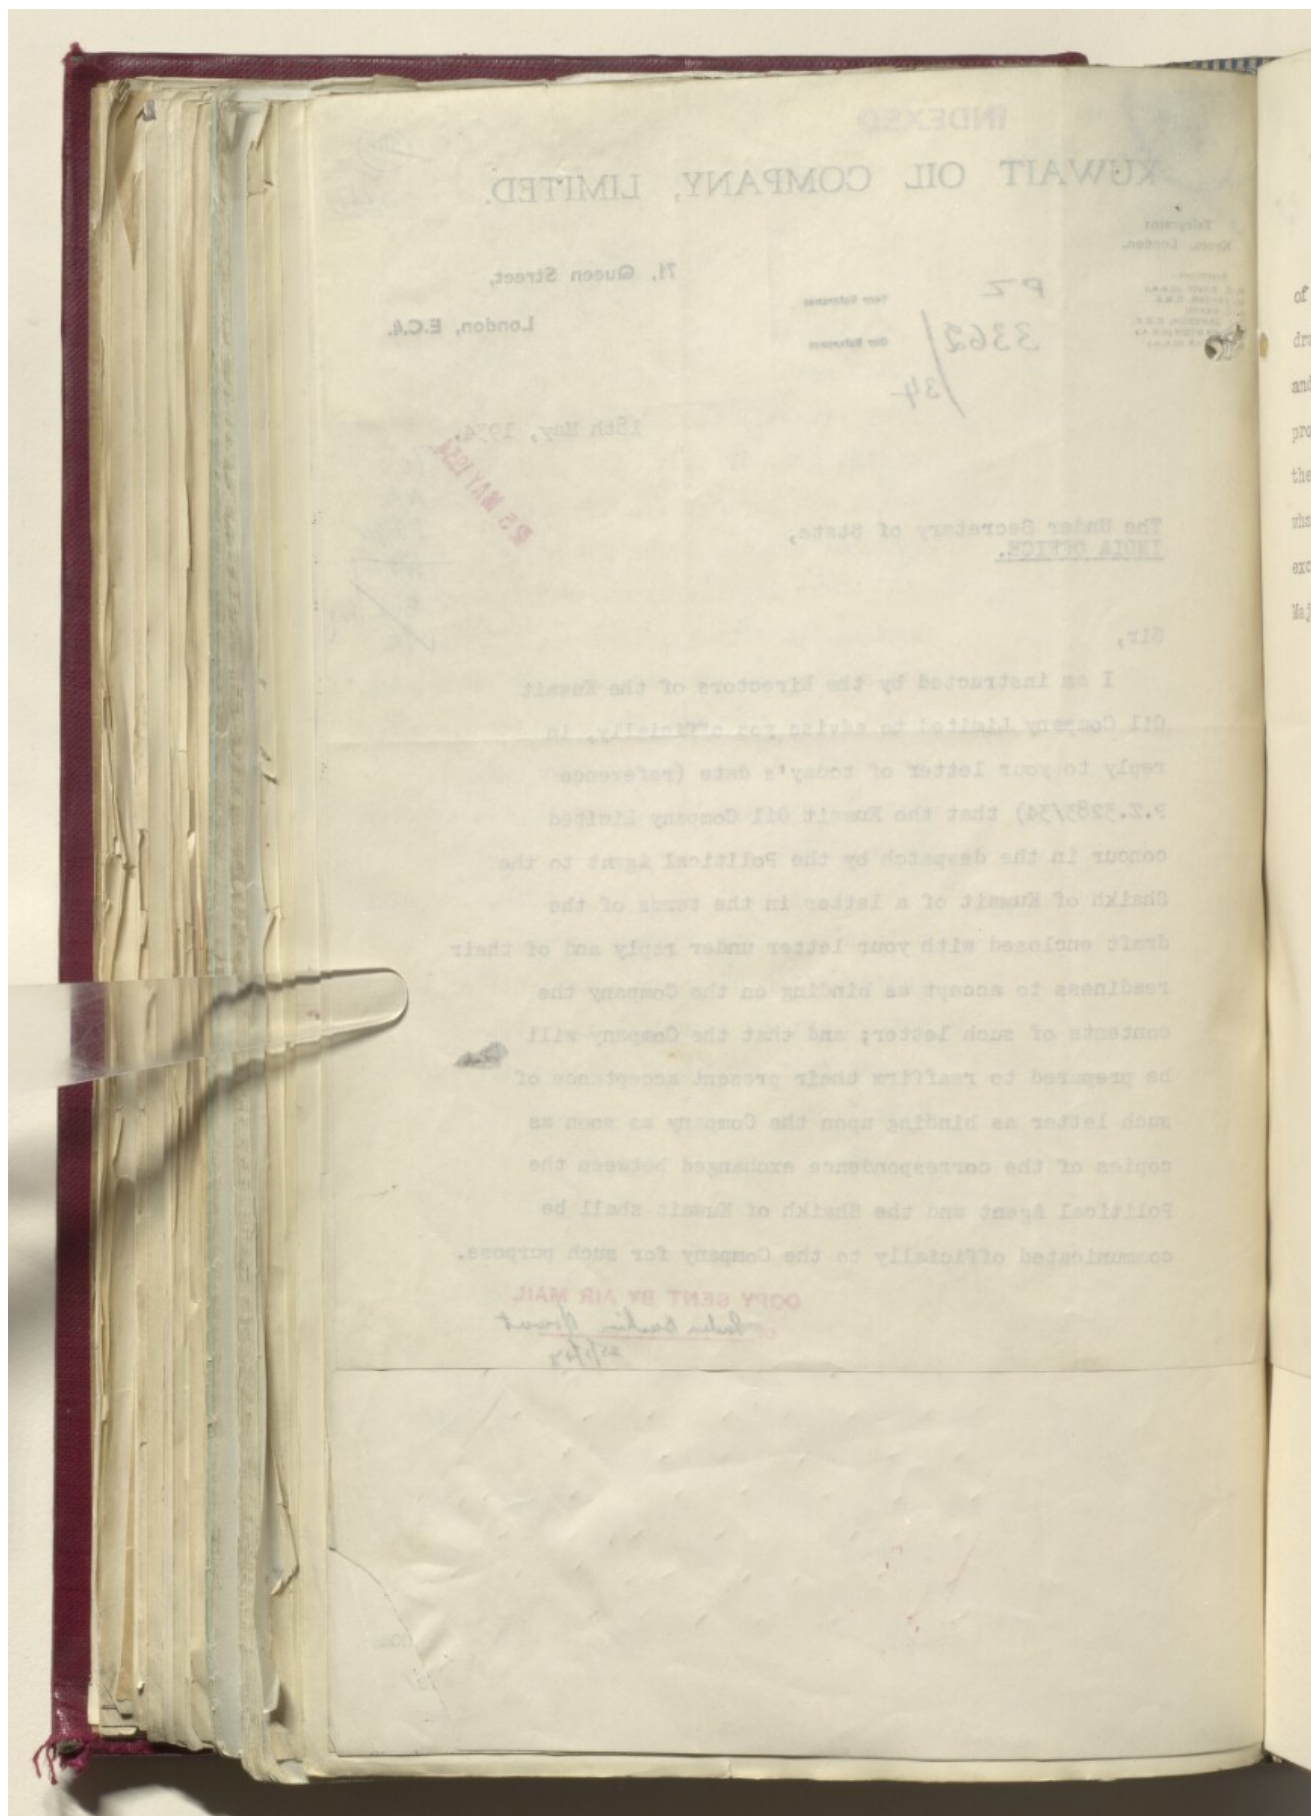 INDEXED
KUWAIT OIL COMPANY, LIMITED.
Telegrams:
Kocos, London.
71, Queen Street,
London, E.C.4.
Your Reference
Our Reference
PZ
3362/34
18th May, 1934.
25 MAY 1934
The Under Secretary of State,
INDIA OFFICE.
Sir,
I am instructed by the Directors of the Kuwait
Oil Company Limited to advise you officially, in
reply to your letter of today's date (reference
P.Z.3283/34) that the Kuwait Oil Company Limited
concur in the despatch by the Political Agent to the
Shaikh of Kuwait of a letter in the terms of the
draft enclosed with your letter under reply and of their
readiness to accept as binding on the Company the
contents of such letter; and that the Company will
be prepared to reaffirm their present acceptance of
such letter as binding upon the Company as soon as
copies of the correspondence exchanged between the
Political Agent and the Shaikh of Kuwait shall be
communicated officially to the Company for such purpose.
COPY SENT BY AIR MAIL
of
and
the